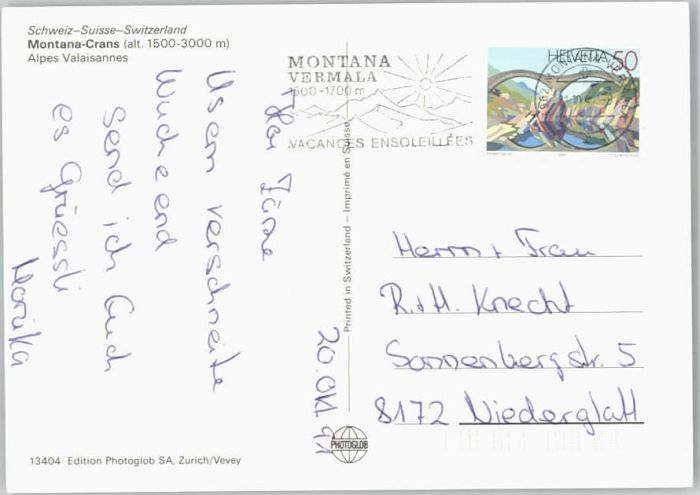 Schweiz–Suisse–Switzerland
Montana-Crans (alt. 1500-3000 m)
Alpes Valaisannes
MONTANA
VERMALA
1500-1700 m
VACANCES ENSOLEILLÉES
HELVETIA 50
20. Okt. 91
Usem verschneite
Wucheend
send ich Euch
es Grüessli
Marika
Herrn + Frau
R. + H. Knecht
Sonnenbergstr. 5
8172 Niederglatt
Printed in Switzerland – Imprimé en Suisse
PHOTOGLOB
13404 Edition Photoglob SA, Zurich/Vevey